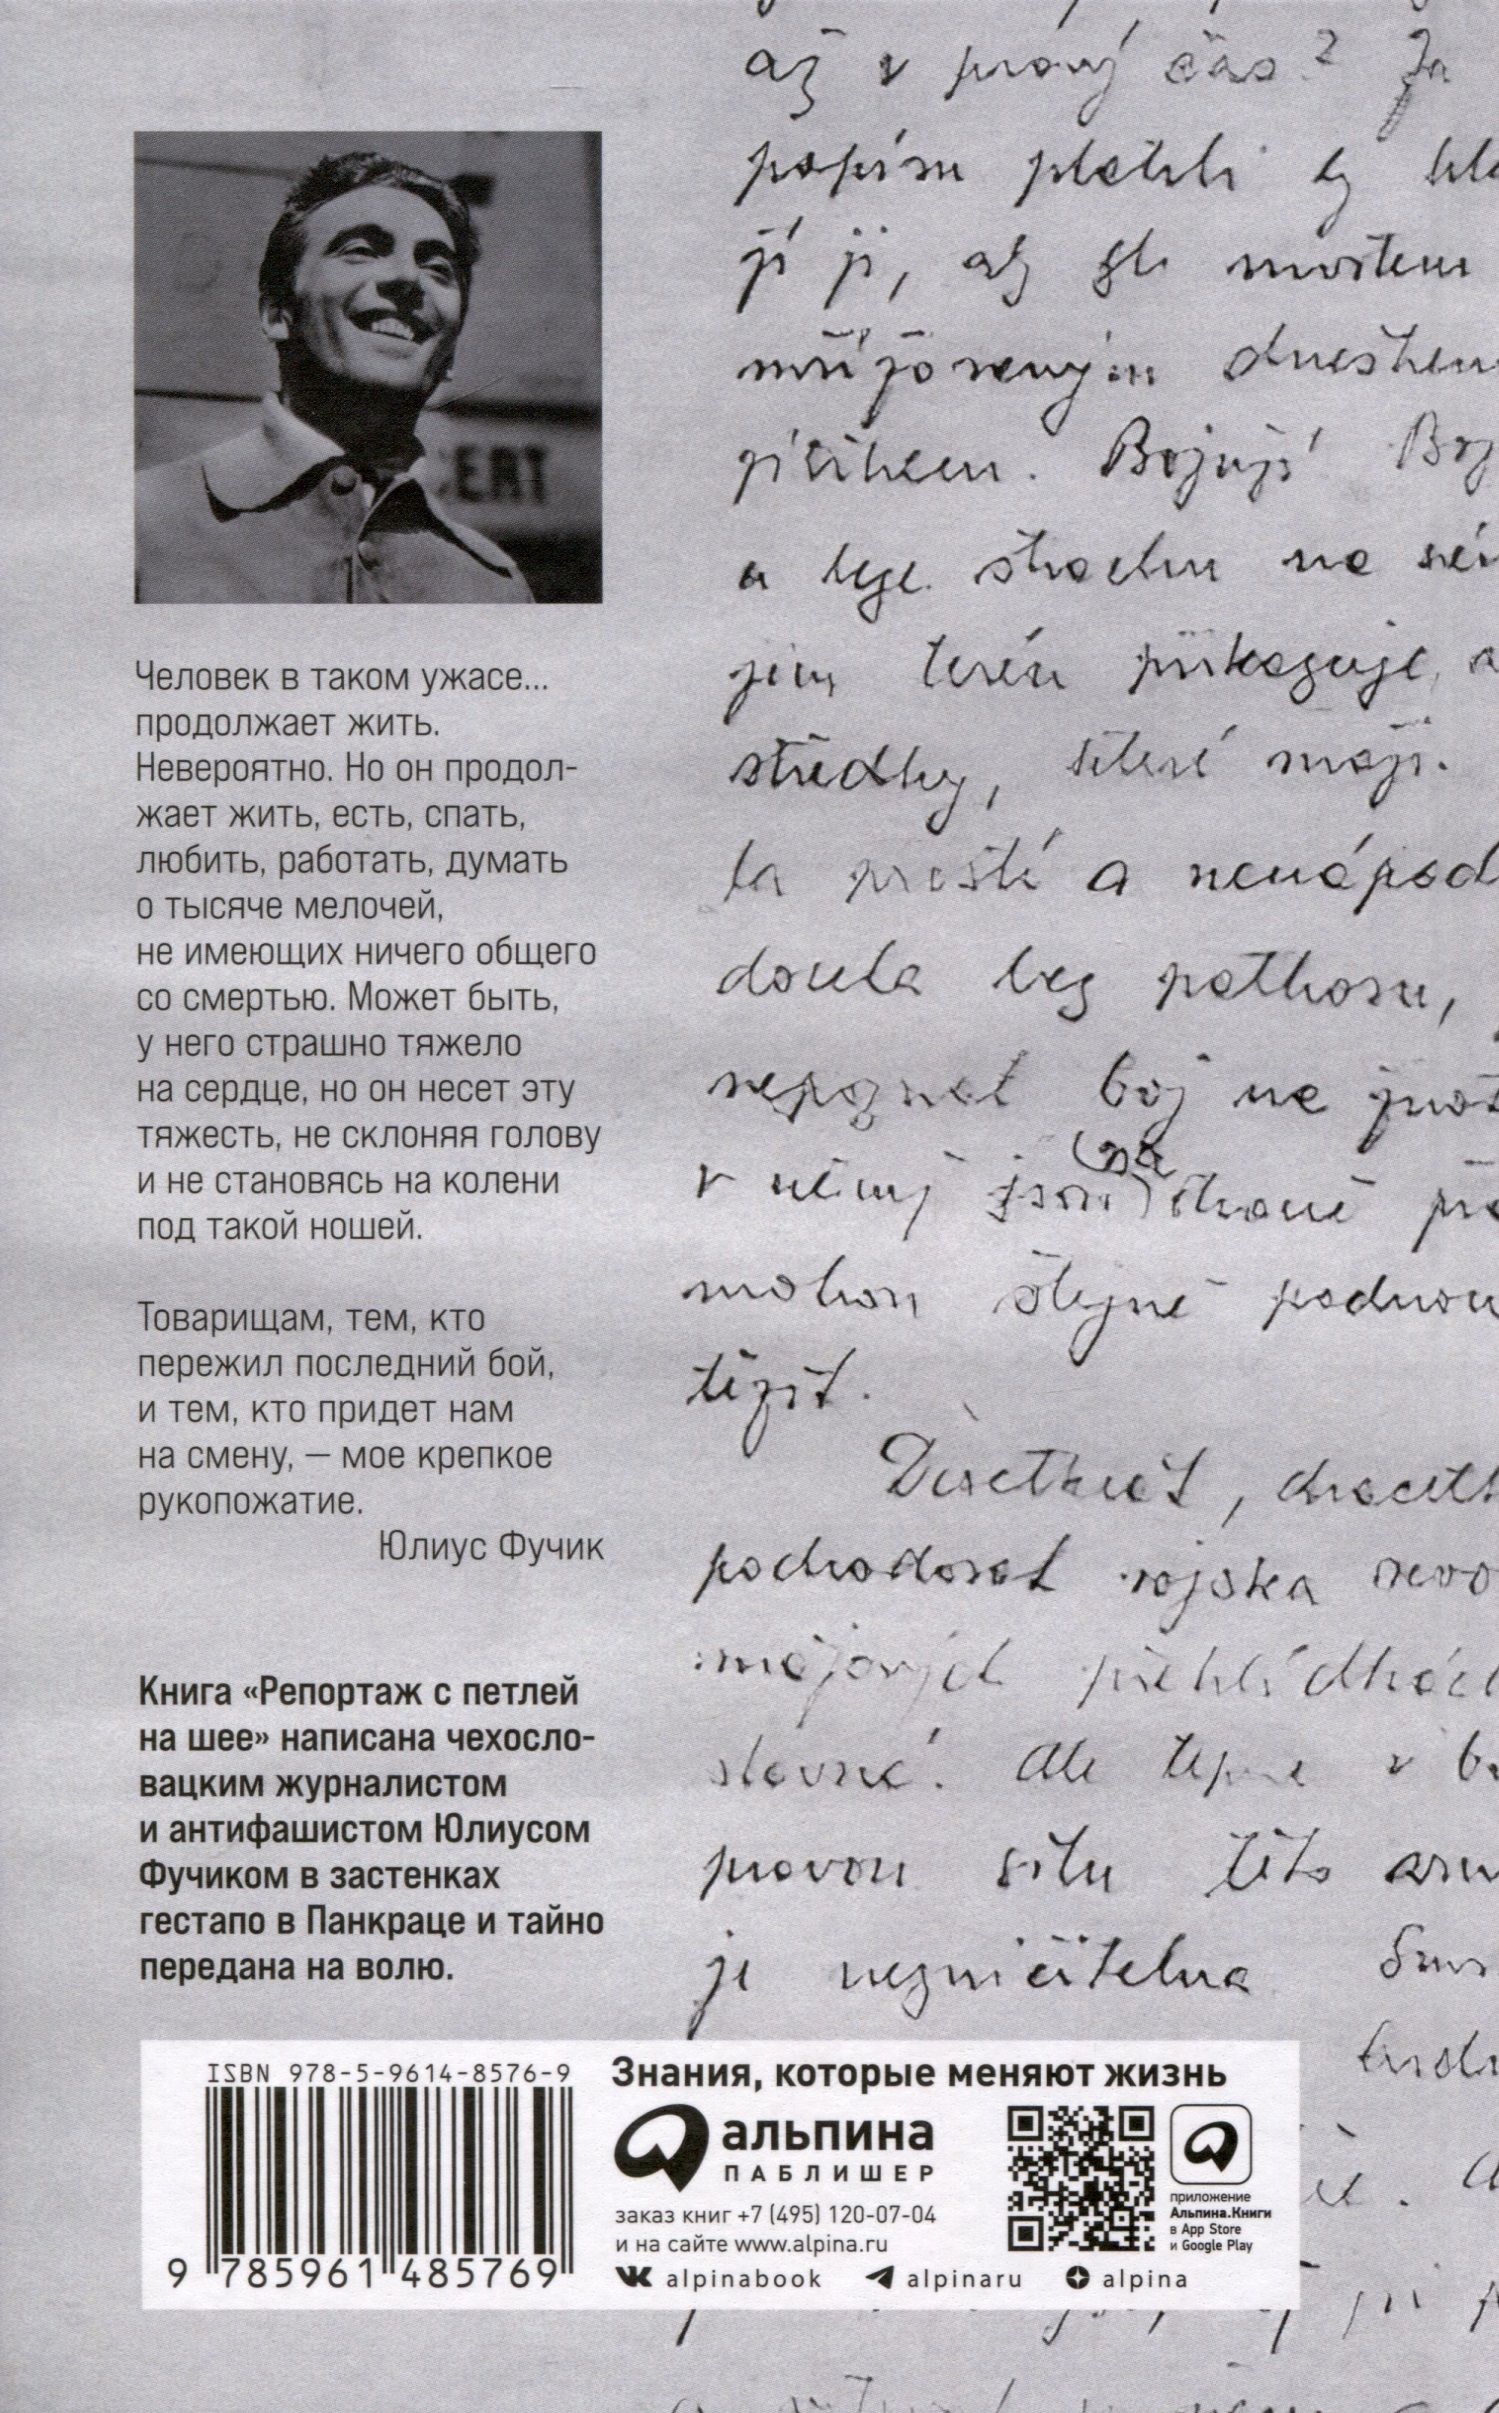 ERT
Человек в таком ужасе...
продолжает жить.
Невероятно. Но он продол-
жает жить, есть, спать,
любить, работать, думать
о тысяче мелочей,
не имеющих ничего общего
со смертью. Может быть,
у него страшно тяжело
на сердце, но он несет эту
тяжесть, не склоняя голову
и не становясь на колени
под такой ношей.
Товарищам, тем, кто
пережил последний бой,
и тем, кто придет нам
на смену, — мое крепкое
рукопожатие.
Юлиус Фучик
Книга «Репортаж с петлей
на шее» написана чехосло-
вацким журналистом
и антифашистом Юлиусом
Фучиком в застенках
гестапо в Панкраце и тайно
передана на волю.
až v pravý čas? Ja
papíru
ji, až
dneškem
Bojují Boj
a beze strachu na
jim terén přikazuje, a
které mají.
ta prostá a nenápad
docela bez pathosu,
nepoznat boj na
v němý
stejně
těžit.
Desetkrát,
pochodovat vojska
májových přehlídkách
slavné. Ale teprve v
pravou sílu této
je nezničitelna
ISBN 978-5-9614-8576-9
9 785961 485769
Знания, которые меняют жизнь
альпина
ПАБЛИШЕР
заказ книг +7 (495) 120-07-04
и на сайте www.alpina.ru
alpinabook alpinaru alpina
приложение
Альпина.Книги
в App Store
и Google Play